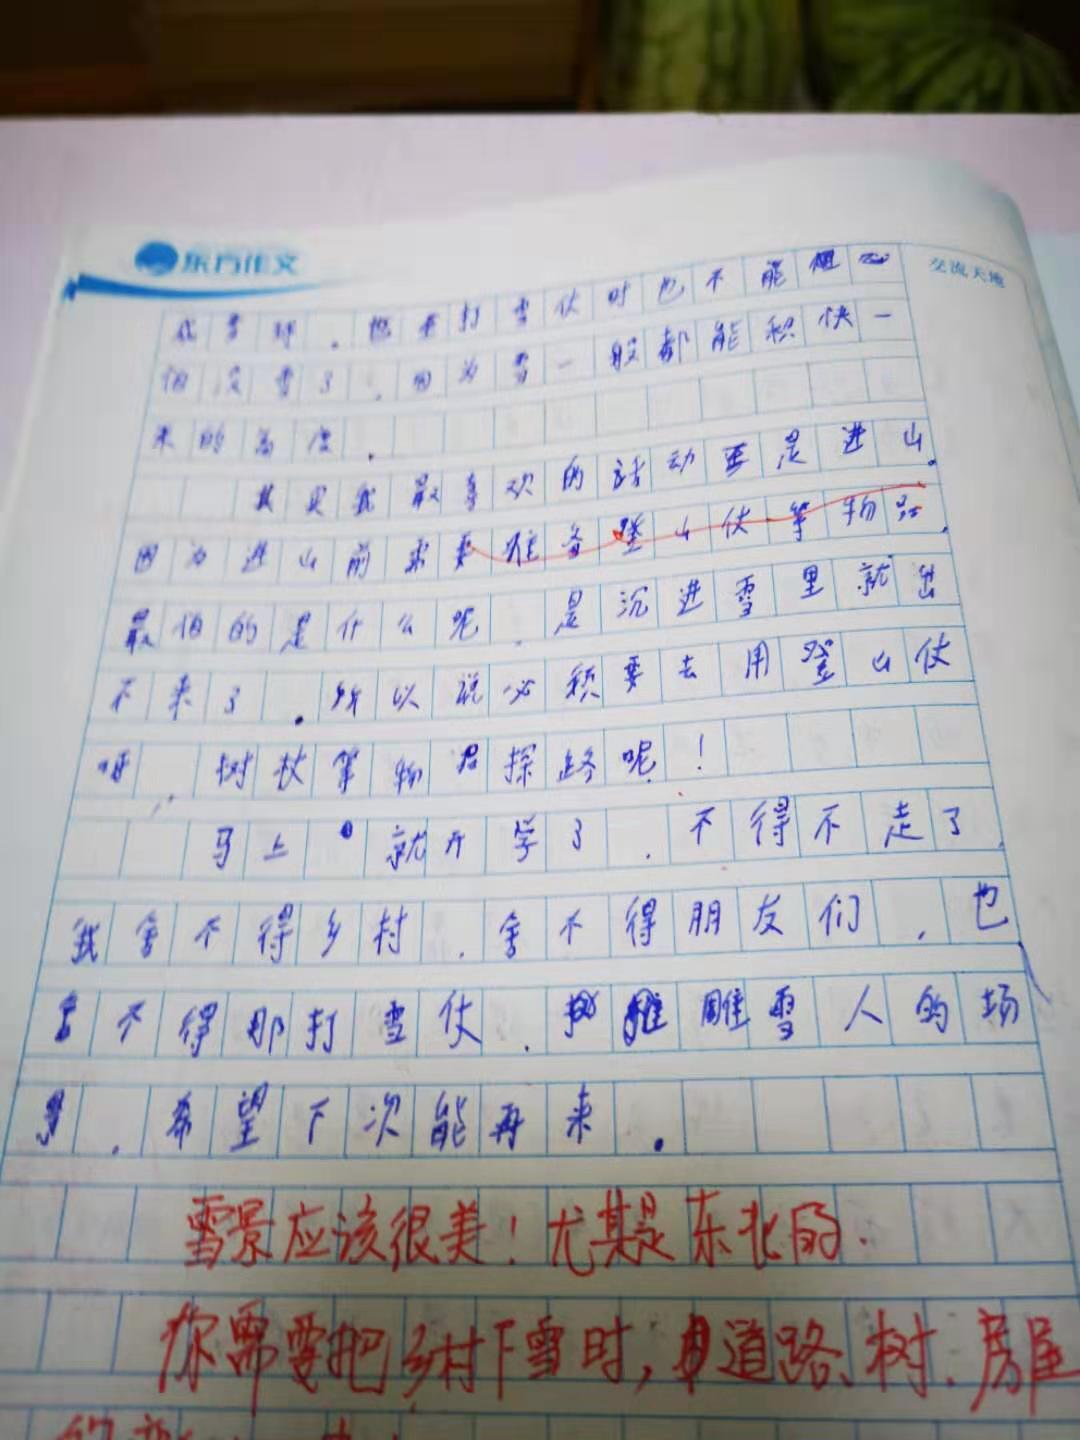 东方作文
交流天地
成雪球.想要打雪仗时也不能
怕没雪了.因为雪一般都能积快一
米的高度.
其实我最喜欢的活动要是进山.
因为进山前需要准备登山仗等物品.
最怕的是什么呢.是沉进雪里就出
不来了.所以说必须要去用登山仗
呀.树杖等物品探路呢!
马上就开学了.不得不走了.
我舍不得乡村.舍不得朋友们.也
舍不得那打雪仗.雕雪人的场
景.希望下次能再来.
雪景应该很美!尤其是东北的.
你需要把乡村下雪时,道路、树、房屋